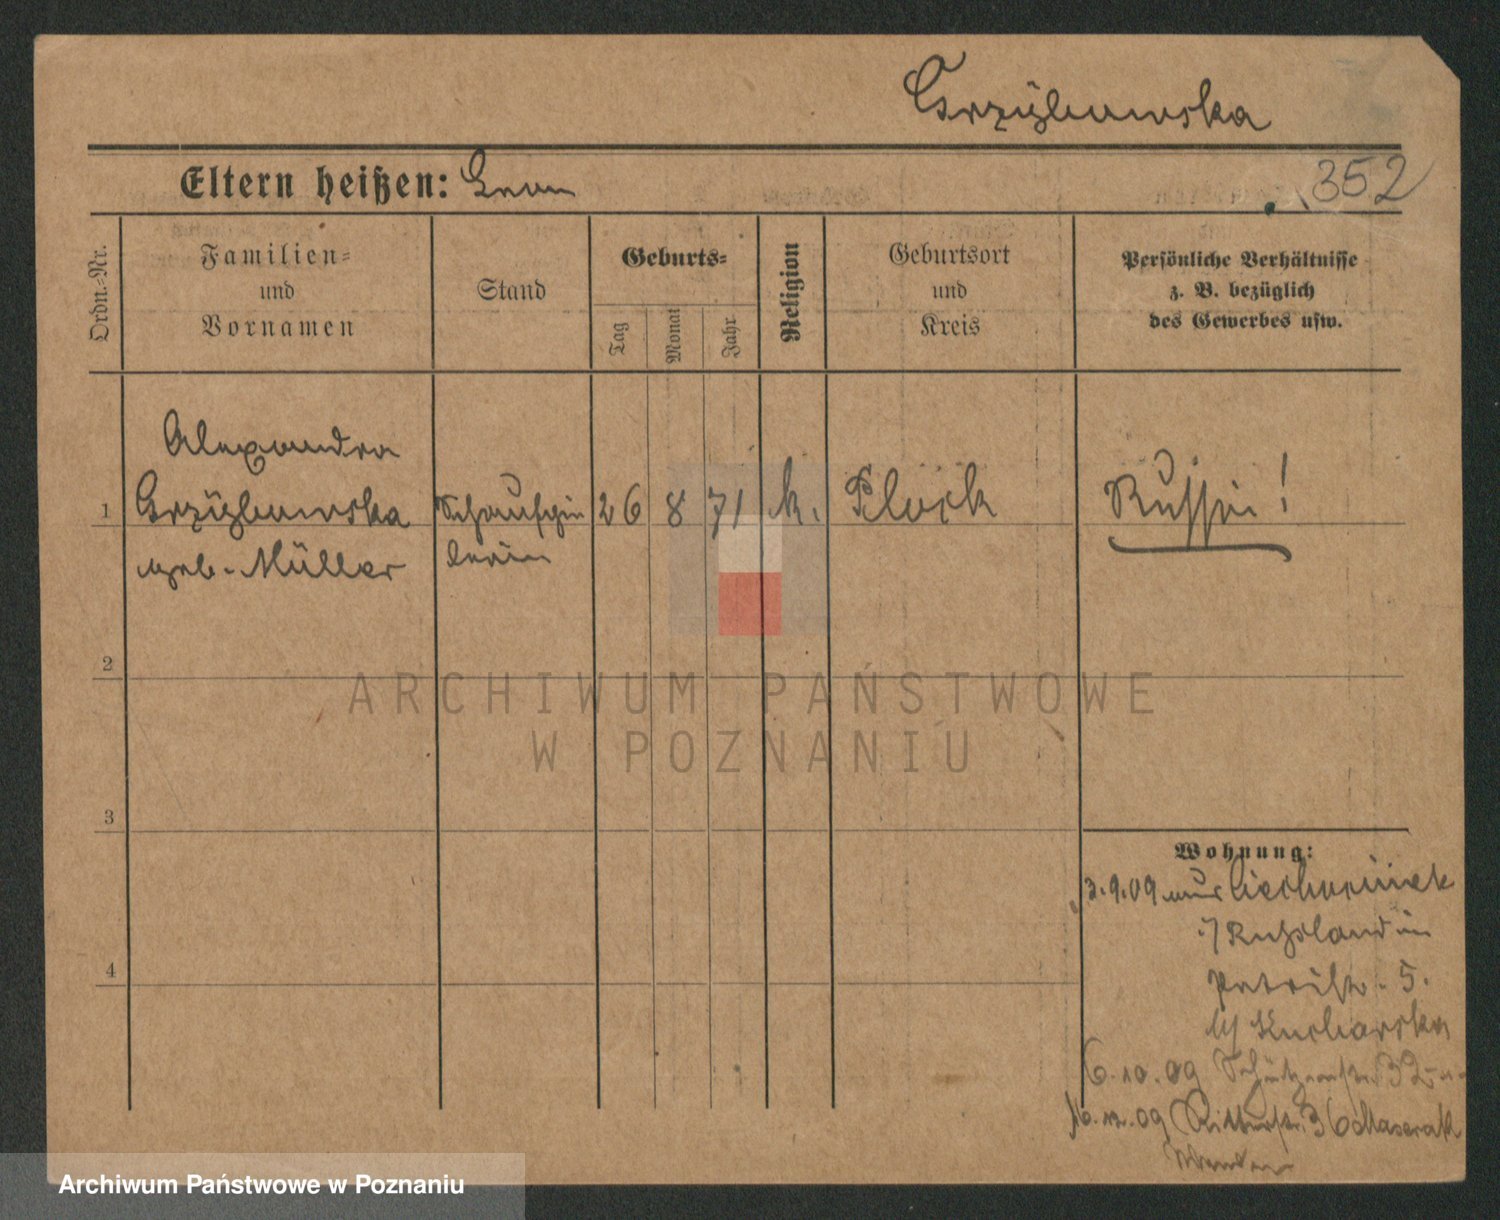 Grzybowska
Eltern heißen: Leon
352
Ordn.-Nr.
Familien-
und
Vornamen
Stand
Geburts-
Tag
Monat
Jahr
Religion
Geburtsort
und
Kreis
Persönliche Verhältnisse
z. B. bezüglich
des Gewerbes usw.
Alexandra
1 Grzybowska Schauspie 26 8 71 k. Plock Russin!
geb. Müller lerin
2
3
4
Wohnung:
3.9.09 aus Ciechocinek
i/ Russland in
Petristr. 5.
b/ Kucharska
6.10.09 Schützenstr. 32
16.12.09 Ritterstr. 36
ARCHIWUM PAŃSTWOWE
W POZNANIU
Archiwum Państwowe w Poznaniu